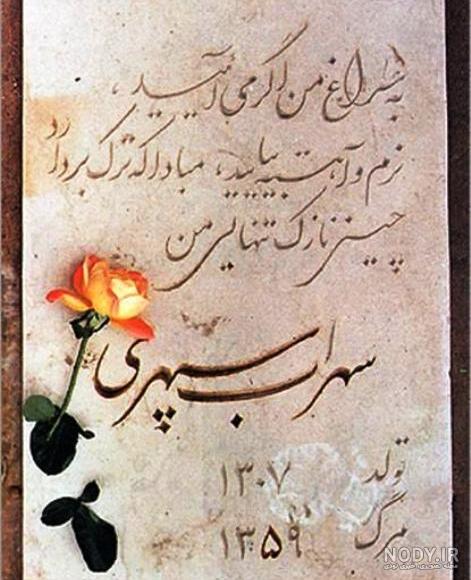 به سراغ من اگر می آئید،
نرم و آهسته بیایید، مبادا که ترک بردارد
چینی نازک تنهایی من
سهراب سپهری
تولد ۱۳۰۷
مرگ ۱۳۵۹
NODY.IR